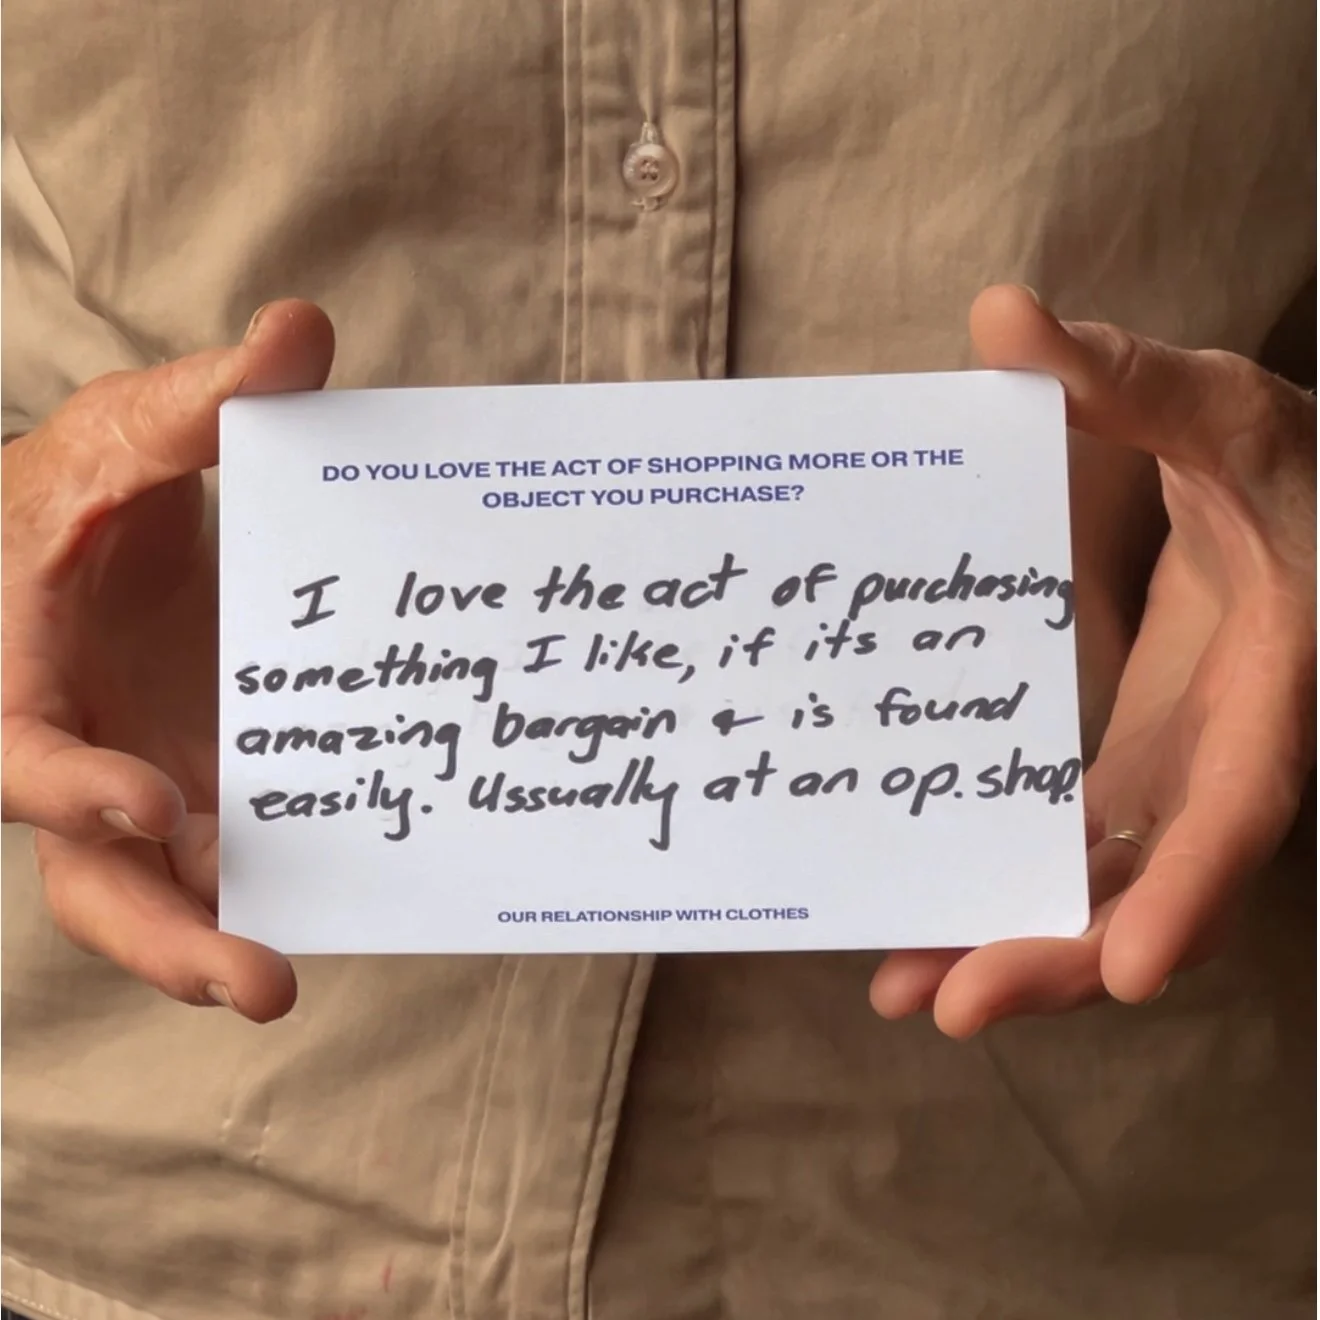 DO YOU LOVE THE ACT OF SHOPPING MORE OR THE
OBJECT YOU PURCHASE?
I love the act of purchasing
something I like, if its an
amazing bargain & is found
easily. Ussually at an op. shop.
OUR RELATIONSHIP WITH CLOTHES